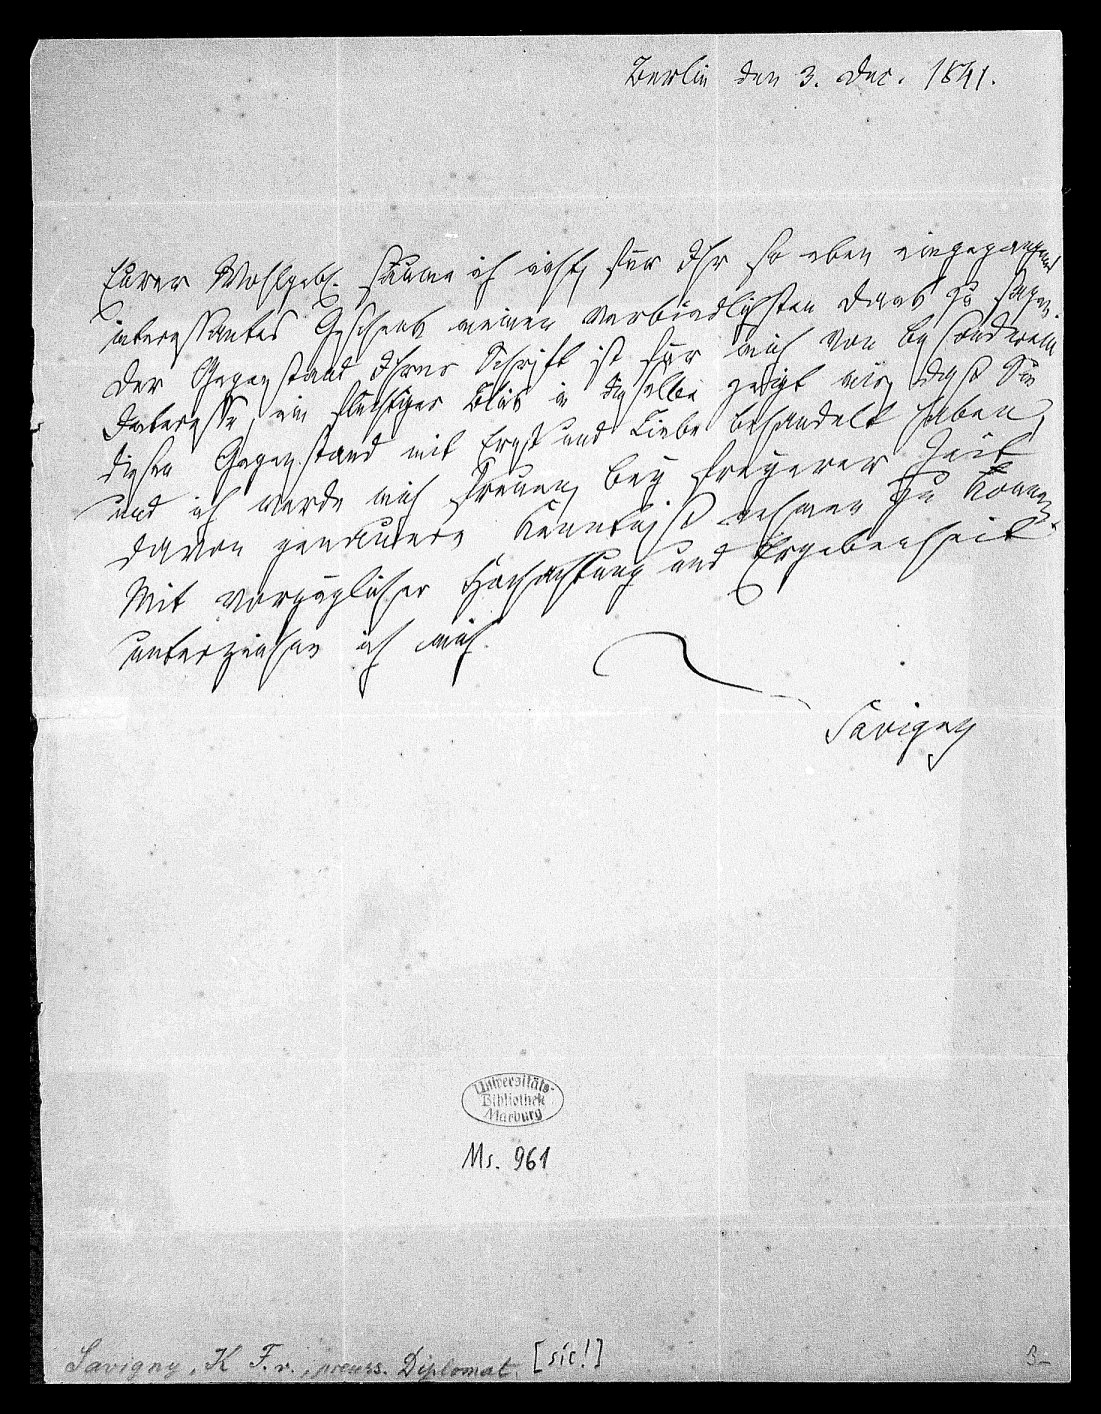 Berlin den 3. Dec. 1841.
Eurer Wohlgeb. säume ich nicht, für Ihr so eben eingegangenes
interessantes Geschenk meinen verbindlichsten Dank zu sagen.
Der Gegenstand Ihrer Schrift ist für mich von besonderem
Interesse, ein flüchtiger Blick in dieselbe zeigt mir, daß Sie
diesen Gegenstand mit Ernst und Liebe behandelt haben,
und ich werde mich freuen, bey freyerer Zeit
davon genauere Kenntniß nehmen zu können.
Mit vorzüglicher Hochachtung und Ergebenheit
unterzeichne ich mich
Savigny
Universitäts-
Bibliothek
Marburg
Ms. 961
Savigny, K. F. v., preuss. Diplomat. [sic!]